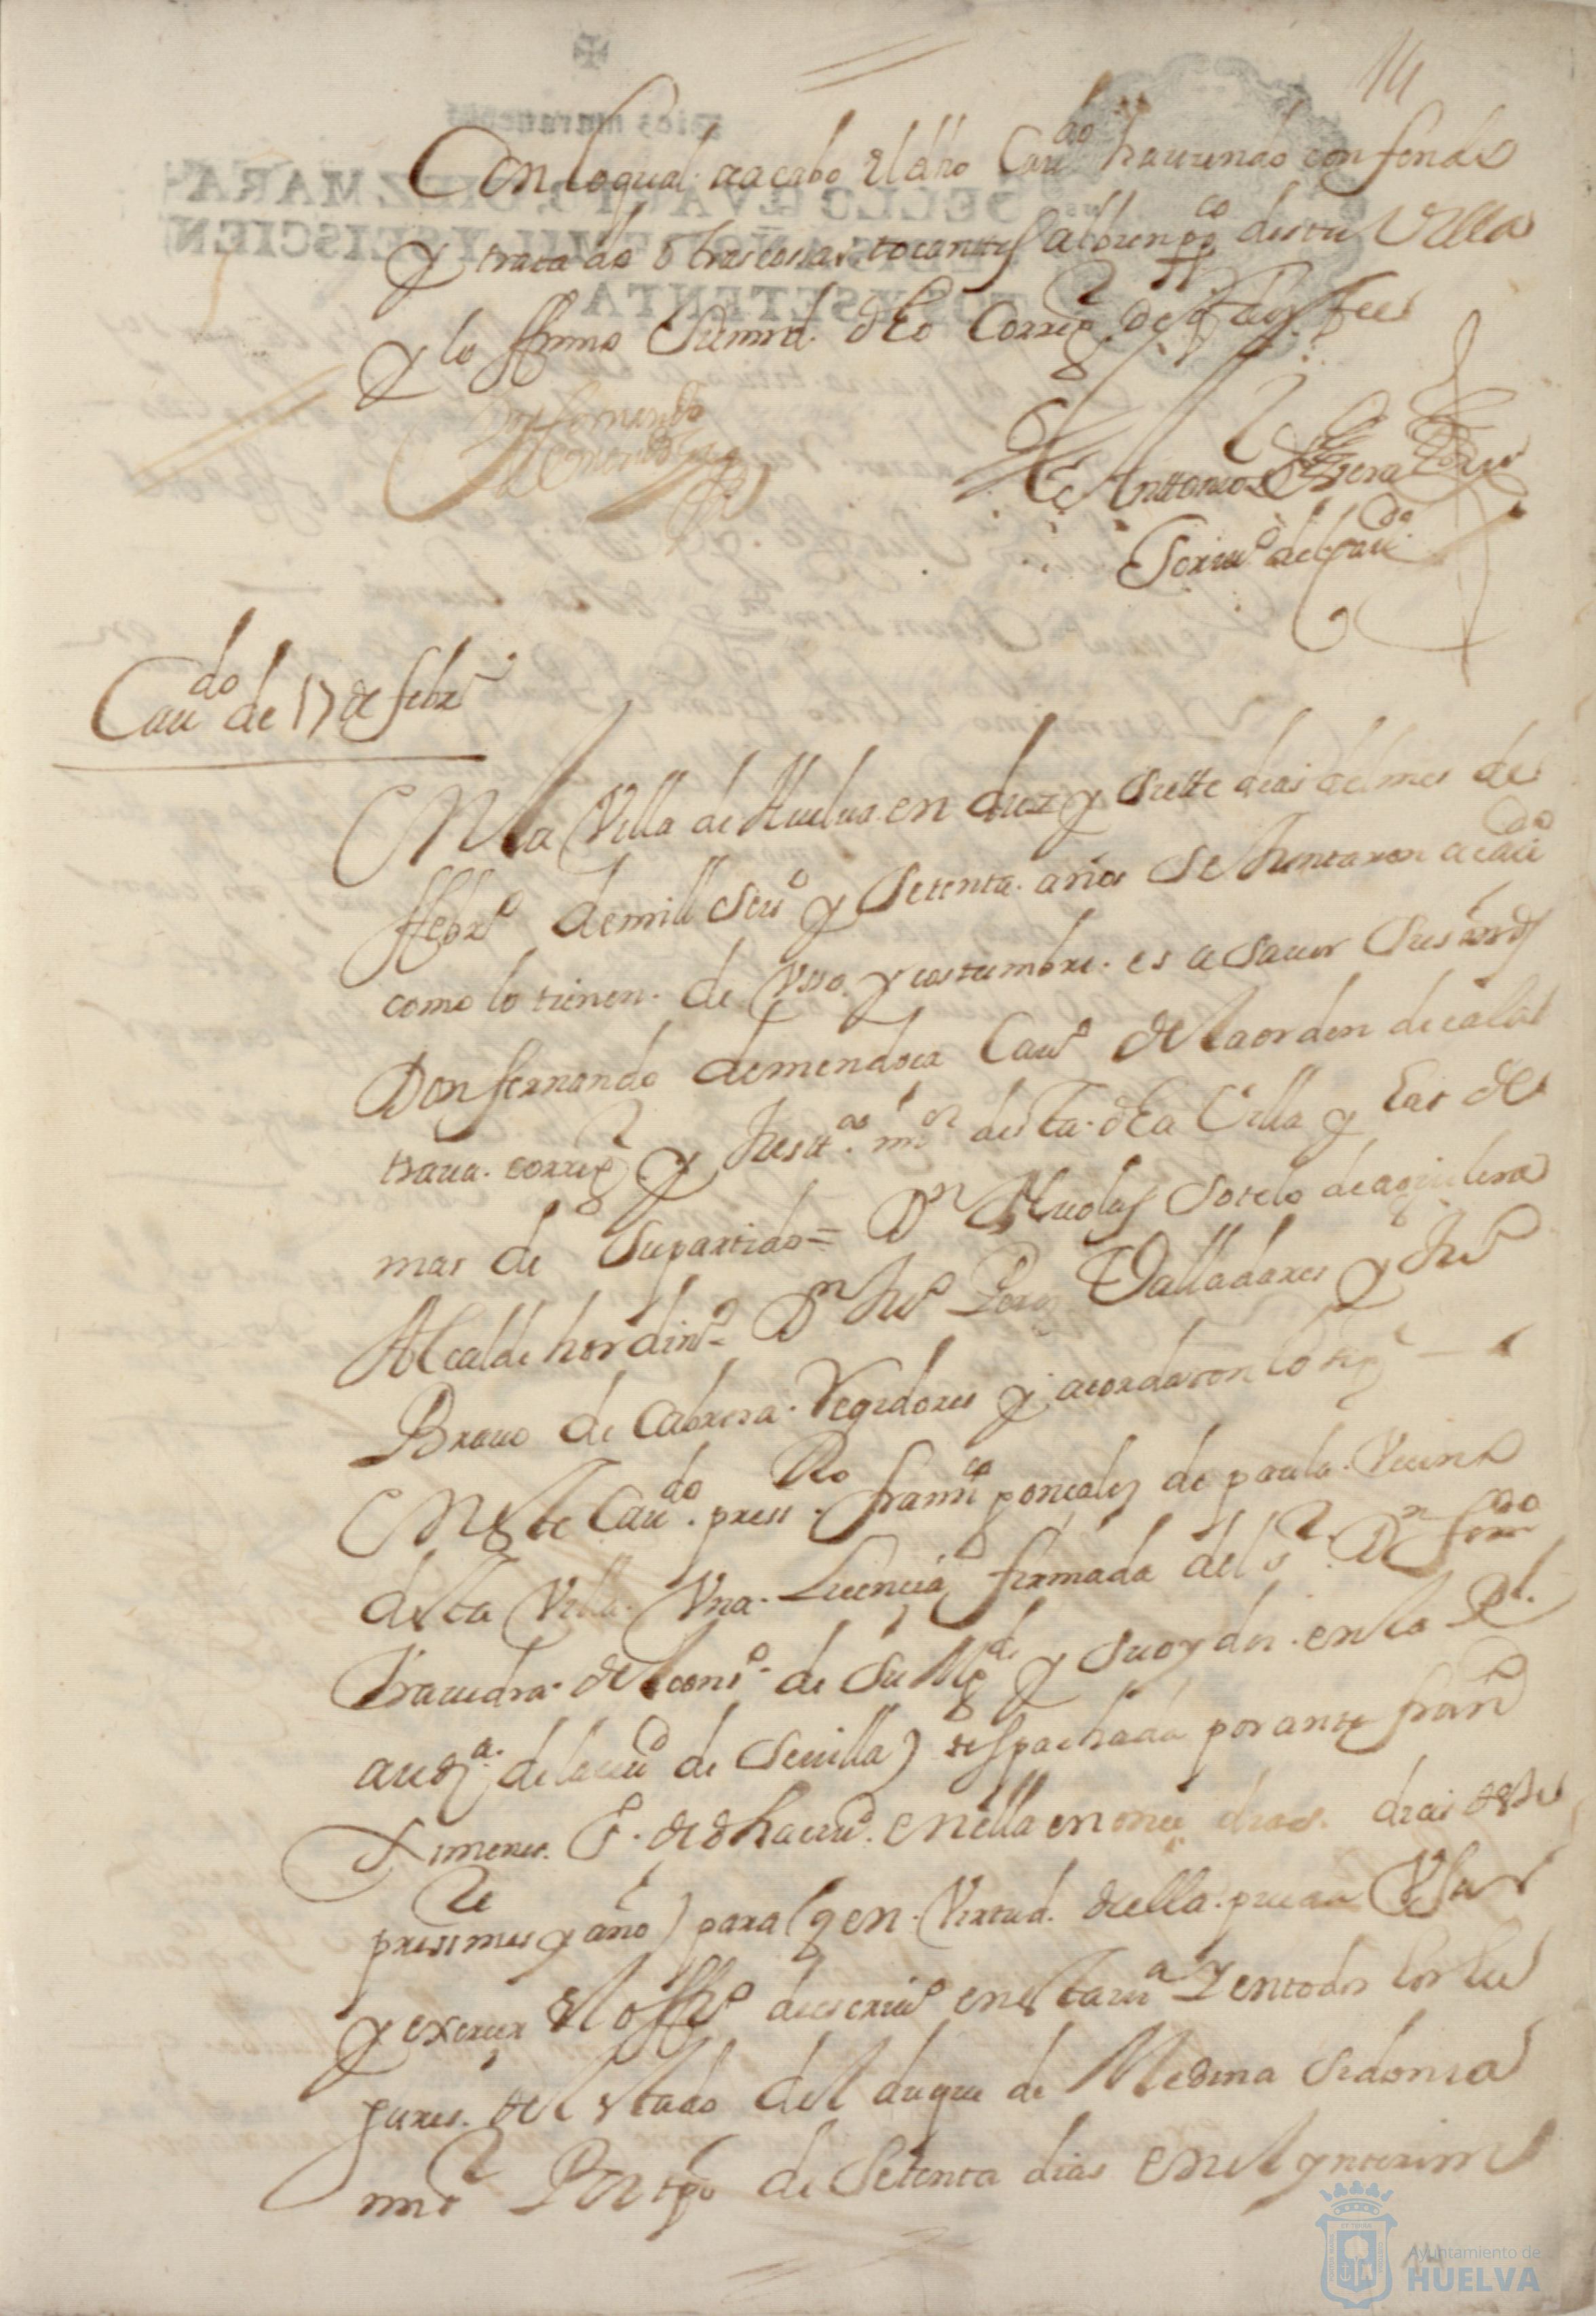 14
Con loqual seacabo eldho Cau.do hauiendo conferido
y tratado otras cossas tocantes al bien pco desta Villa
y lo firmo Sumrd. dho Corregr de q doy fee
Don fernando
de mendoza
Antonio
Scriuo del Cau.do
Cau.do de 17 de febro
En la Villa de Huelua en diez y siette dias del mes de
ffebro de mill seiso y setenta años se Juntaron a cau.do
como lo tienen de Vsso y costumbre es a sauer sus mrds
Don fernando de mendoza Cauo de la orden de cala
traua corregr y Justa mor desta dha Villa y las de
mas de su partido = Dn Nicolas sotelo de aguilera
Alcalde hordino Dn Juo Perez Valladares y Juo
Brauo de Cabrera Regidores y acordaron lo sigte
En este Cau.do press.to franco gonzales de paula Vecino
desta Villa Vna Licencia firmada del sr Dn ferdo
Trauiedra del conso de su Mgd y su oydor en la Rl
auda de la ciud de Seuilla) despachada por ante franco
Ximenes Es. de dha ciud. en ella en onze dias deste
preste mes y año) para q en Virtud della pueda Vsar
y exercer el offo de escriuo en esta va y en todos los lu
gares del estado del duque de Medina Sidonia
mi sr Por tpo de setenta dias en el ynterim
Ayuntamiento de
HUELVA